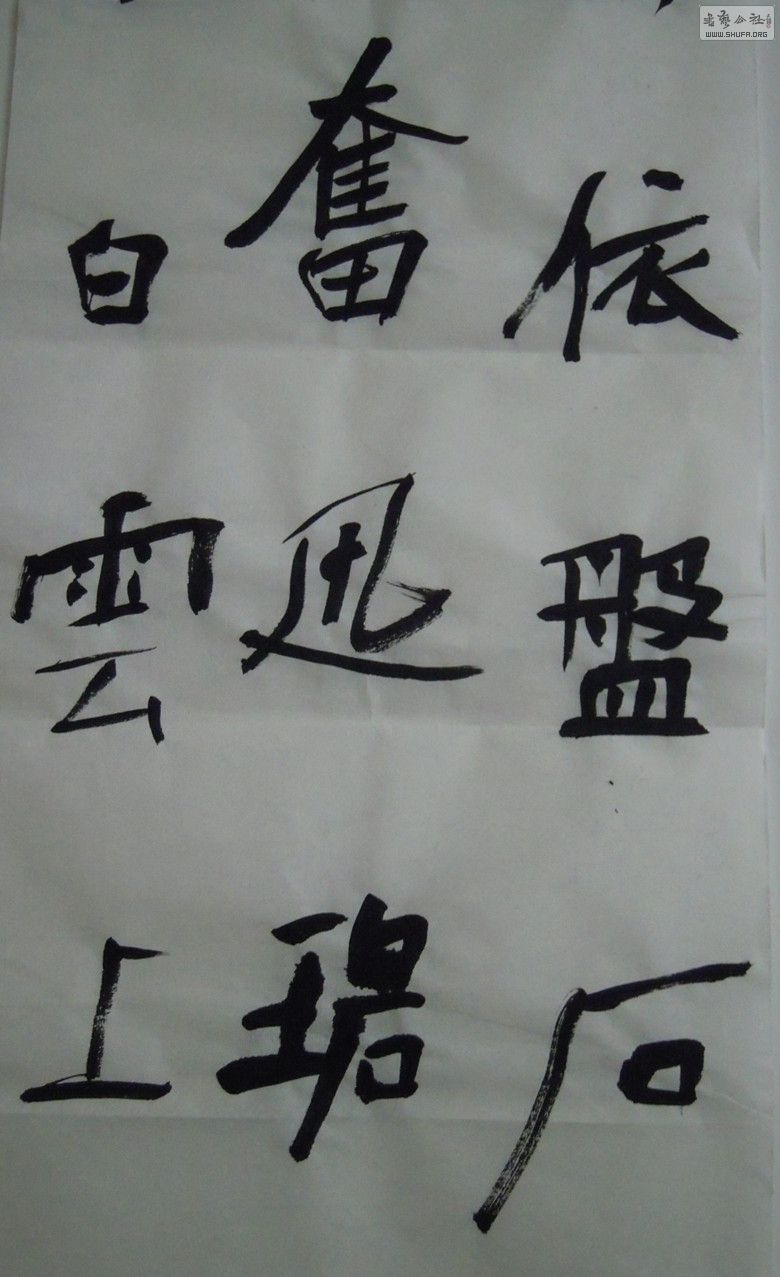 依盤石
奮迅碧
白雲上
书艺公社
WWW.SHUFA.ORG